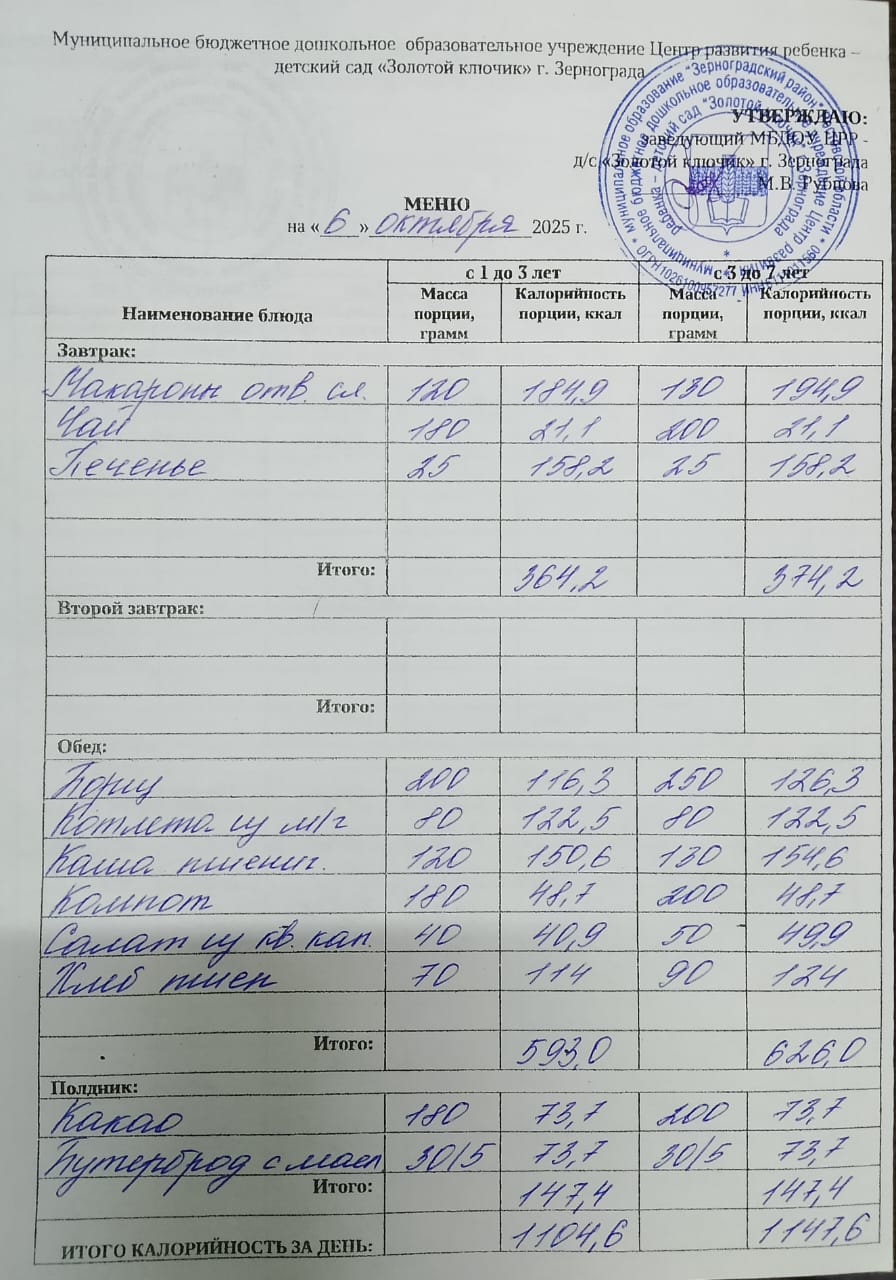 Муниципальное бюджетное дошкольное образовательное учреждение Центр развития ребенка –
детский сад «Золотой ключик» г. Зернограда
УТВЕРЖДАЮ:
заведующий МБДОУ ЦРР -
д/с «Золотой ключик» г. Зернограда
М.В. Рубцова
МЕНЮ
на « 6 » октября 2025 г.
Наименование блюда с 1 до 3 лет с 3 до 7 лет
Масса порции, грамм Калорийность порции, ккал Масса порции, грамм Калорийность порции, ккал
Завтрак:
Макароны отв. сл. 120 184,9 130 194,9
Чай 180 21,1 200 21,1
Печенье 25 158,2 25 158,2
Итого: 364,2 374,2
Второй завтрак:
Итого:
Обед:
Борщ 200 116,3 250 126,3
Котлета из м/г 80 122,5 80 122,5
Каша пшенич. 120 150,6 130 154,6
Компот 180 48,7 200 48,7
Салат из кв. кап. 40 40,9 50 49,9
Хлеб пшен 70 114 90 124
Итого: 593,0 626,0
Полдник:
Какао 180 73,7 200 73,7
Бутерброд с масл. 30/5 73,7 30/5 73,7
Итого: 147,4 147,4
ИТОГО КАЛОРИЙНОСТЬ ЗА ДЕНЬ: 1104,6 1147,6